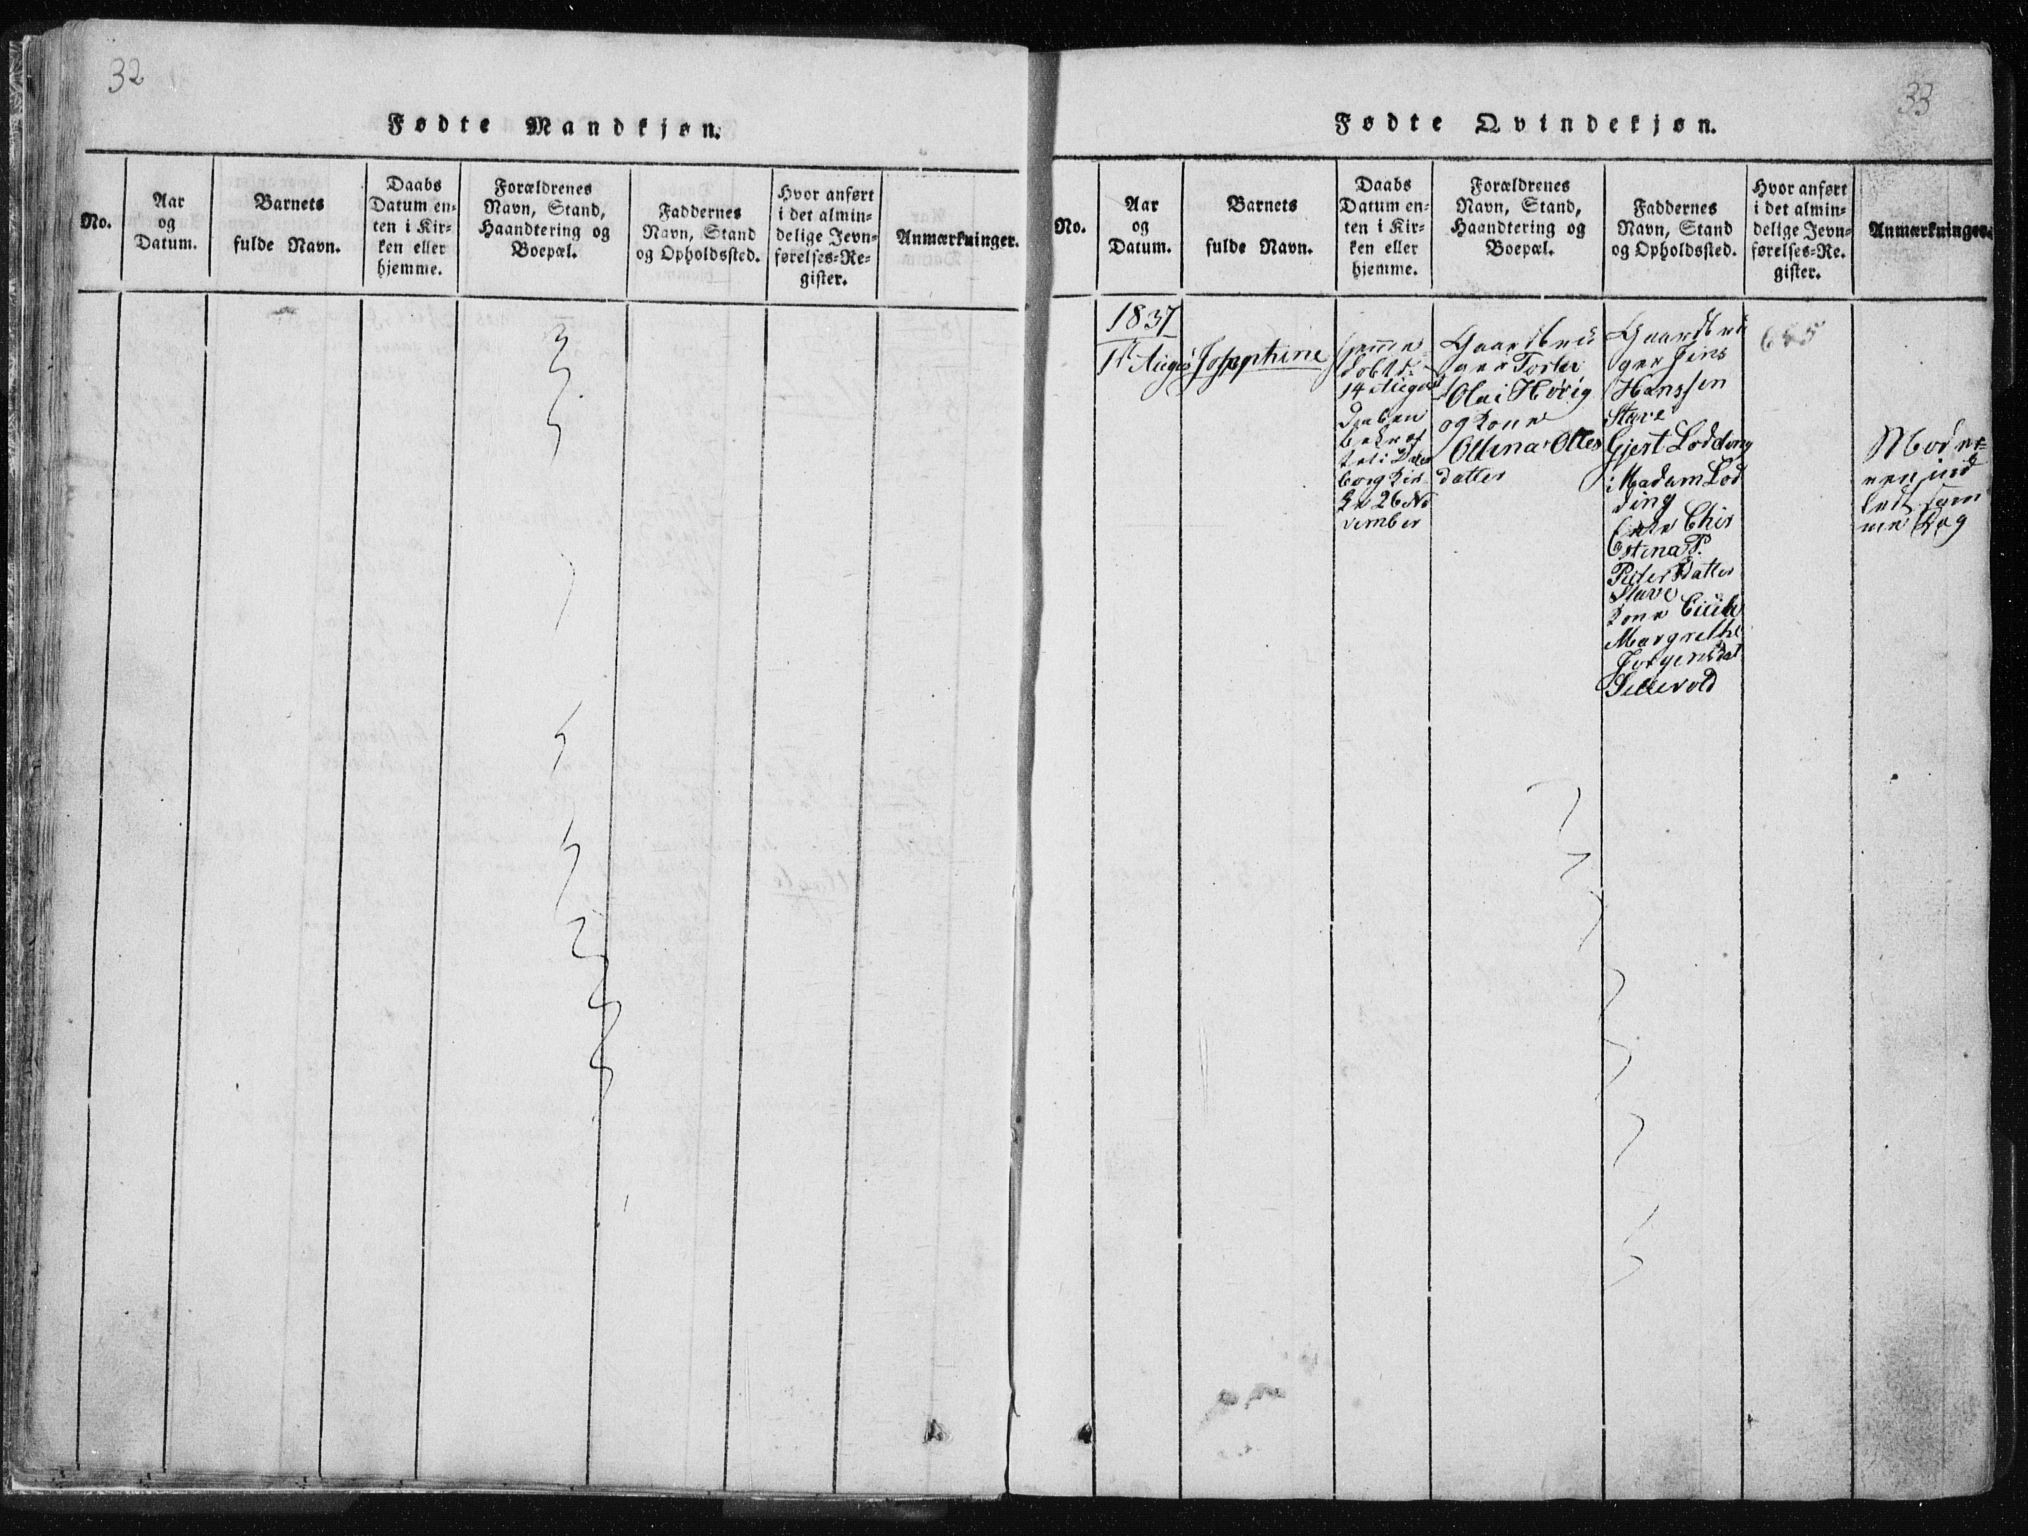 32
Fødte Mandkjøn.
No.
Aar
og
Datum.
Barnets
fulde Navn.
Daabs
Datum en-
ten i Kir-
ken eller
hjemme.
Forældrenes
Navn, Stand,
Haandtering og
Boepæl.
Faddernes
Navn, Stand
og Opholdssted.
Hvor anført
i det almin-
delige Jevn-
førelses-Re-
gister.
Anmærkninger.
33
Fødte Qvindekjøn.
No.
Aar
og
Datum.
Barnets
fulde Navn.
Daabs
Datum en-
ten i Kir-
ken eller
hjemme.
Forældrenes
Navn, Stand,
Haandtering og
Boepæl.
Faddernes
Navn, Stand
og Opholdssted.
Hvor anført
i det almin-
delige Jevn-
førelses-Re-
gister.
Anmærkninger.
1837
Josephine
14 August
Daaben
bekræf
borg Kir
ke 26 No
vember
Gaardbru
ger
Olai Hovig
og Kone
Ottina Olles
datter
Gaardbru
ger Jens
Hanssen
Stave
Gjert Lodding
Madam Lod
ding
Chir
stina P.
Peders Datter
Stave
Kone
Margrethe
Jørgensdat
Sellevold
685